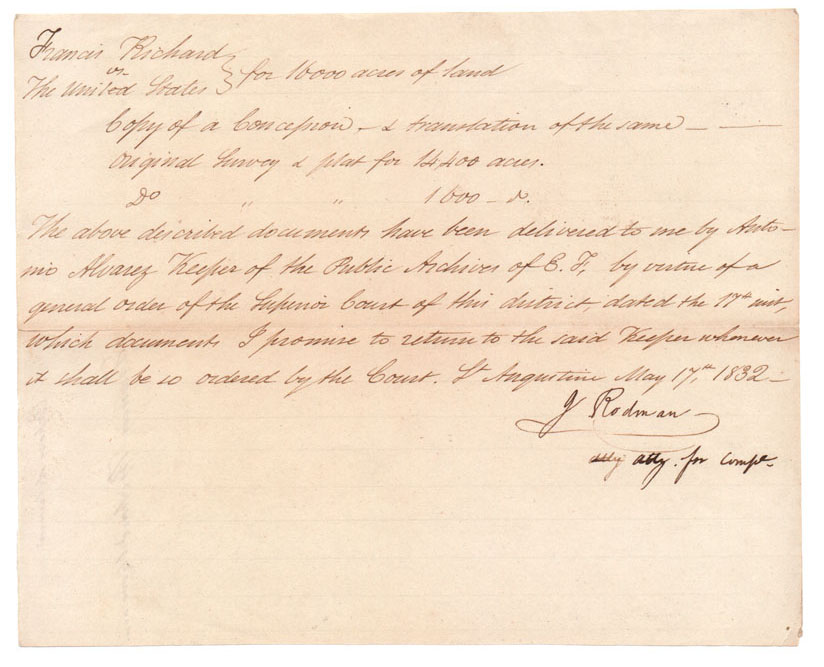 Francis Richard
vs.
The United States } for 16000 acres of land
Copy of a Concession - & translation of the same -
Original Survey & plat for 14,400 acres.
Do " " 1600 - do.
The above described documents have been delivered to me by Anto-
nio Alvarez Keeper of the Public Archives of E. F. by virtue of a
general order of the Superior Court of this district, dated the 17th inst,
which documents I promise to return to the said Keeper whenever
it shall be so ordered by the Court. St Augustine May 17th, 1832 -
J Rodman
atty. for compt.